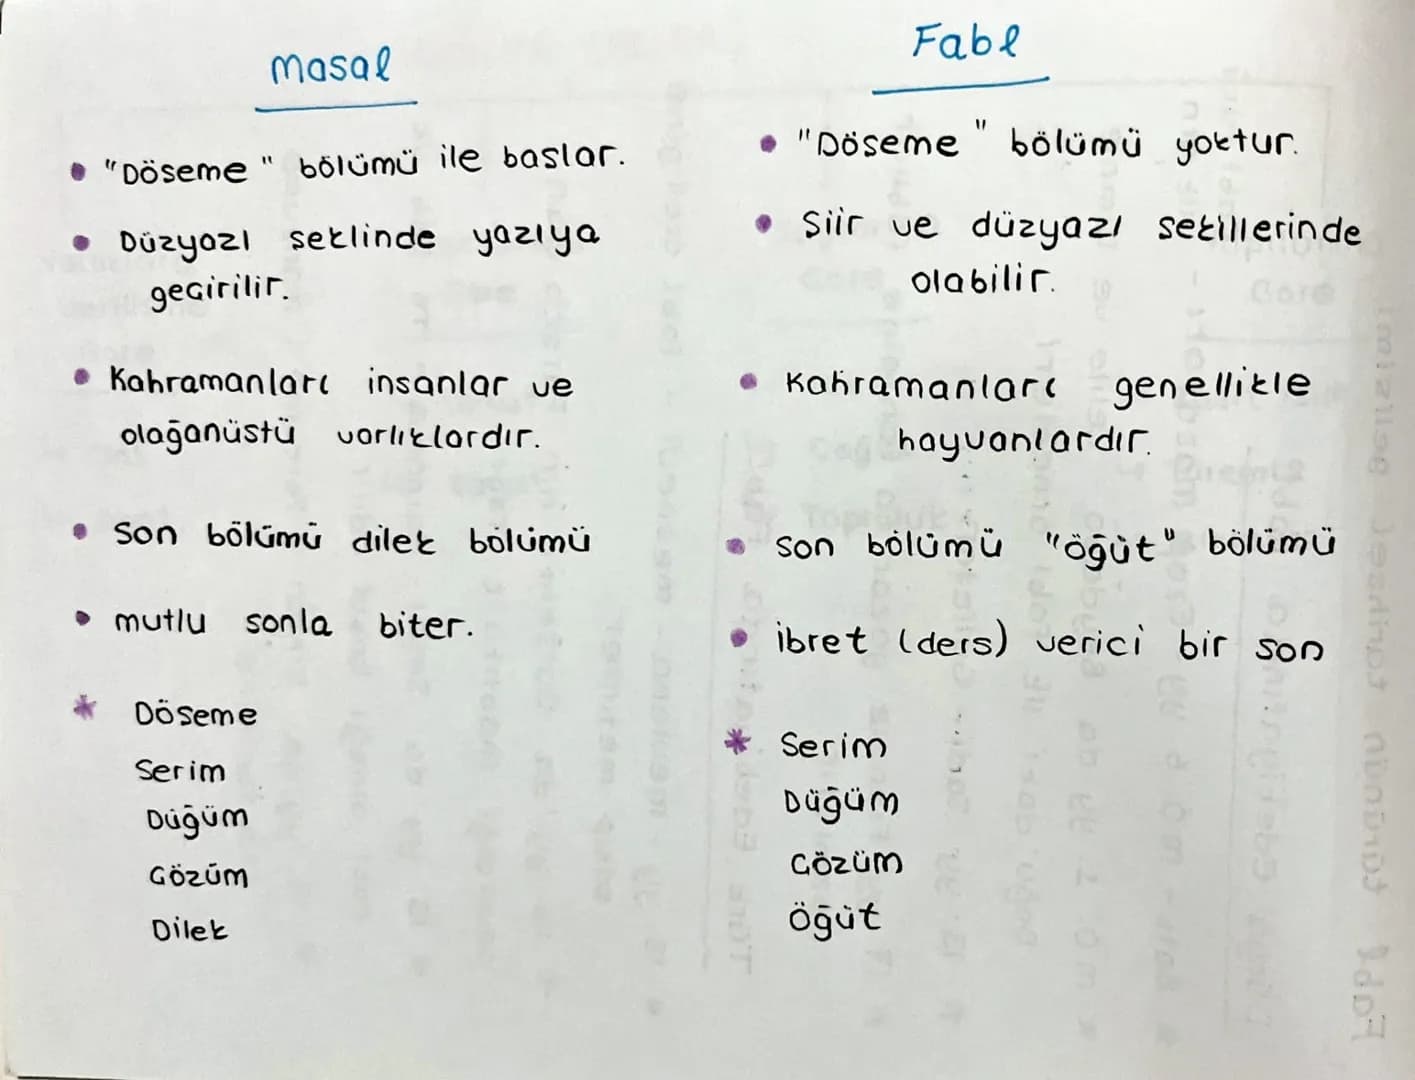 masal
• "Döseme" bölümü ile baslar.
• Düzyazı seklinde yazıya
gecirilir.
• Kahramanları insanlar ve
olağanüstü varlıklardır.
• Son bölümü dilek bölümü
• mutlu sonla biter.
* Döseme
Serim
Düğüm
Cözüm
Dilek
Fabl
• "Döseme" bölümü yoktur.
• Siir ve düzyazı sekillerinde
olabilir.
• Kahramanları genellikle
hayvanlardır.
• Son bölümü "öğüt" bölümü
• ibret (ders) verici bir son
* Serim
Düğüm
Cözüm
Öğüt